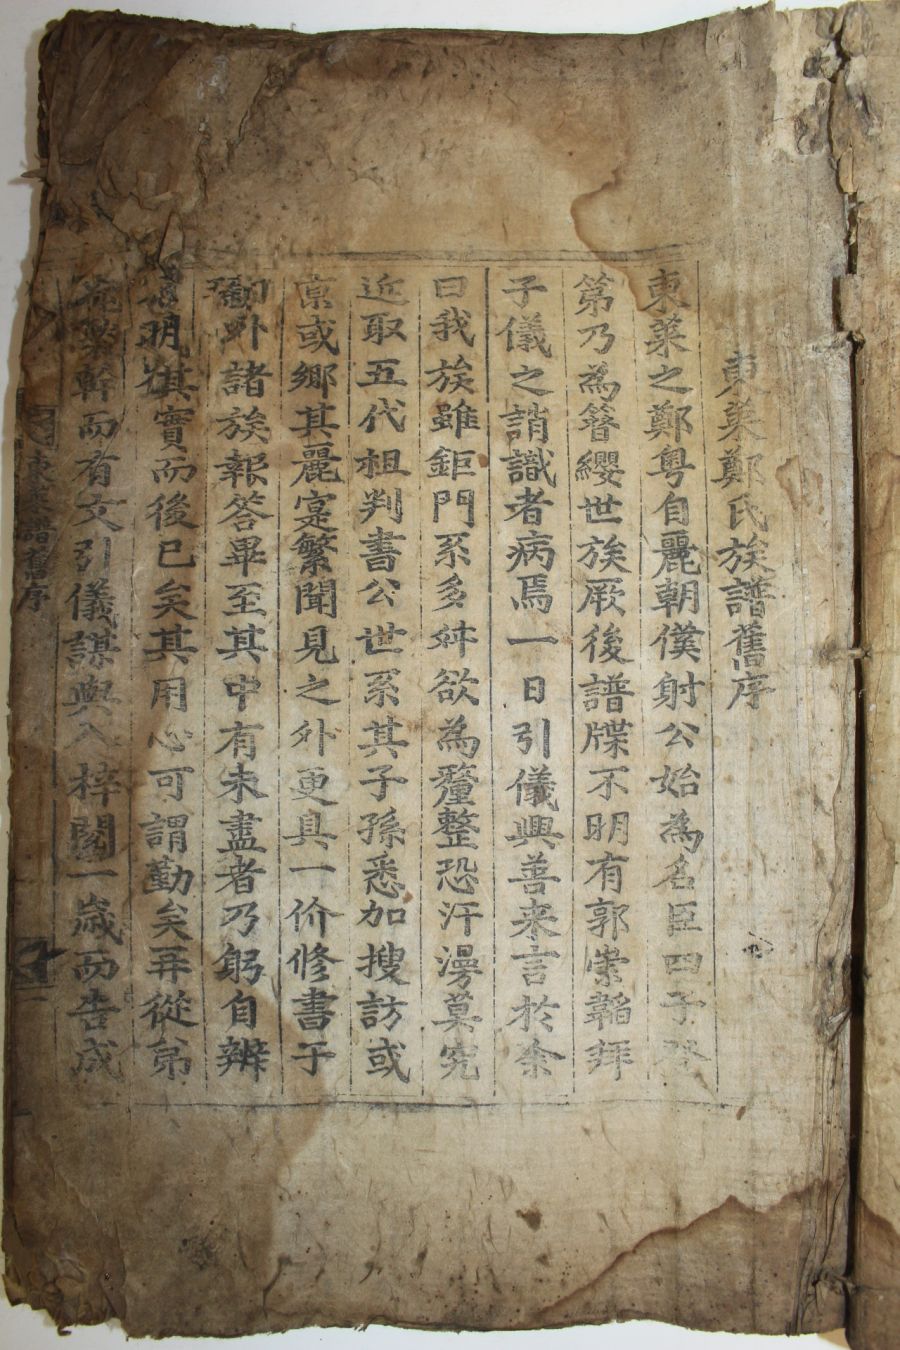 東萊鄭氏族譜舊序
東萊之鄭粤自麗朝僕射公始為名臣四子登
第乃為簪纓世族厥後譜牒不明有郭崇韜拜
子儀之誚識者病焉一日引儀興善来言於余
曰我族雖鉅門系多舛欲為釐整恐汗漫莫究
近取五代祖判書公世系其子孫悉加搜訪或
京或鄉其麗寔繁聞見之外更具一价修書于
鄉外諸族報答畢至其中有未盡者乃躬自辨
明其實而後已矣其用心可謂勤矣再從弟
幹而有文引儀謀與入梓閱一歲而告成
東萊譜舊序